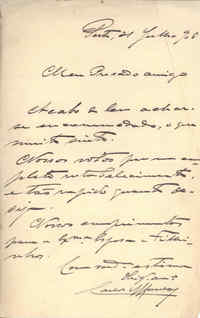 Porto, 21 Julho 926
Meu Presado amigo
Acabo de ler achar-
se encommodado, o que
muito sinto.
Nossos votos por com
pleto restabelecimento
e tão rapido quanto de-
seja.
Nossos cumprimentos
para a Exma Esposa e Filhi-
nhos.
Com estima